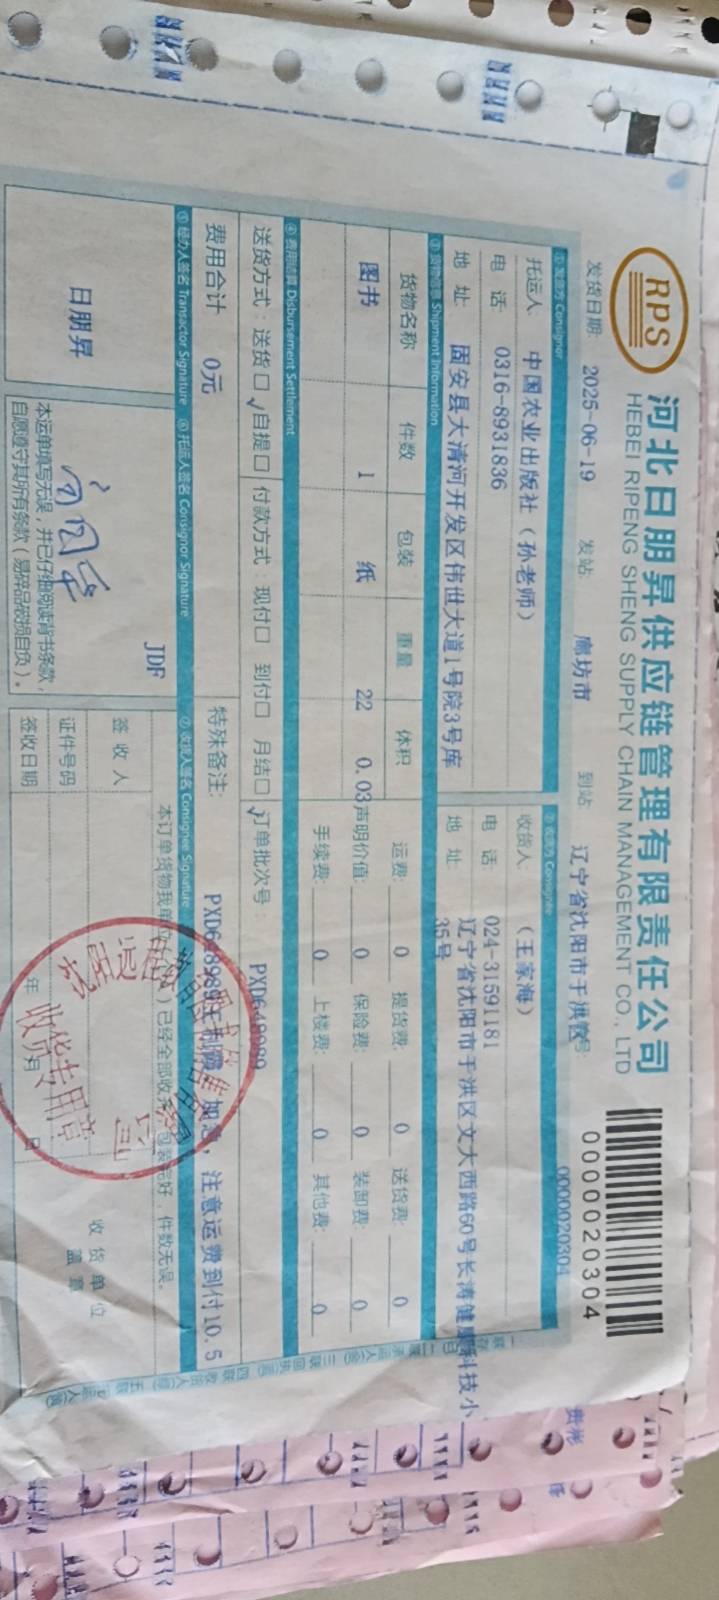 RPS
河北日朋昇供应链管理有限责任公司
HEBEI RIPENG SHENG SUPPLY CHAIN MANAGEMENT CO., LTD
0000020304
发货日期: 2025-06-19 发站: 廊坊市 到站: 辽宁省沈阳市于洪区
0000020304
① 发货方 Consignor
② 收货方 Consignee
托运人: 中国农业出版社（孙老师）
收货人: （王家海）
电 话: 0316-8931836
电 话: 024-31591181
地 址: 固安县大清河开发区伟世大道1号院3号库
地 址: 辽宁省沈阳市于洪区文大西路60号长涛健康科技小
35号
③ 货物信息 Shipment Information
货物名称 件数 包装 重量 体积
图书 1 纸 22 0.03
运费: 0 提货费: 0 送货费: 0
声明价值: 0 保险费: 0 装卸费: 0
手续费: 0 上楼费: 0 其他费: 0
④ 费用结算 Disbursement Settlement
送货方式: 送货□ √自提□ 付款方式: 现付□ 到付□ 月结□√
订单批次号: PXD648989
费用合计 0元
特殊备注: PXD648989王利霞 加急, 注意运费到付10.5
⑤ 经办人签名 Transactor Signature
⑥ 托运人签名 Consignor Signature
⑦ 收货人签名 Consignee Signature
日朋昇
JDF
本运单填写无误, 并已仔细阅读背书条款,
自愿遵守其所有条款（易碎品破损自负）。
已经全部收 包装完好, 件数无误。
签 收 人
证件号码
签收日期 年 月 日
收 货 单 位
盖 章
收货专用章